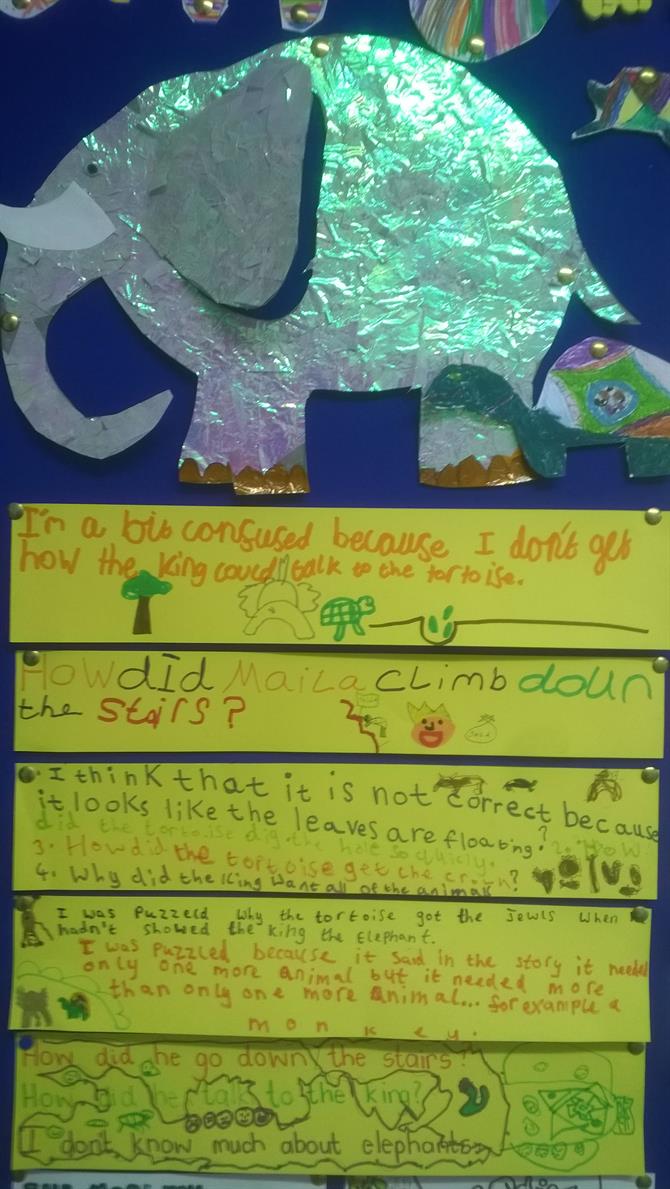 I'm a bit confused because I don't get
how the king could talk to the tortoise.
How did Maila climb down
the stairs?
1. I think that it is not correct because
it looks like the leaves are floating. 2. How
did the tortoise dig the hole so quicly?
3. How did the tortoise get the crown?
4. Why did the King want all of the animals
I was Puzzeld Why the tortoise got the Jewls when he
hadn't showed the king the Elephant.
I was puzzled because it said in the story it needed
only one more animal but it needed more
than only one more animal... for example a
monkey.
How did he go down the stairs?
How did he talk to the king?
I don't know much about elephants